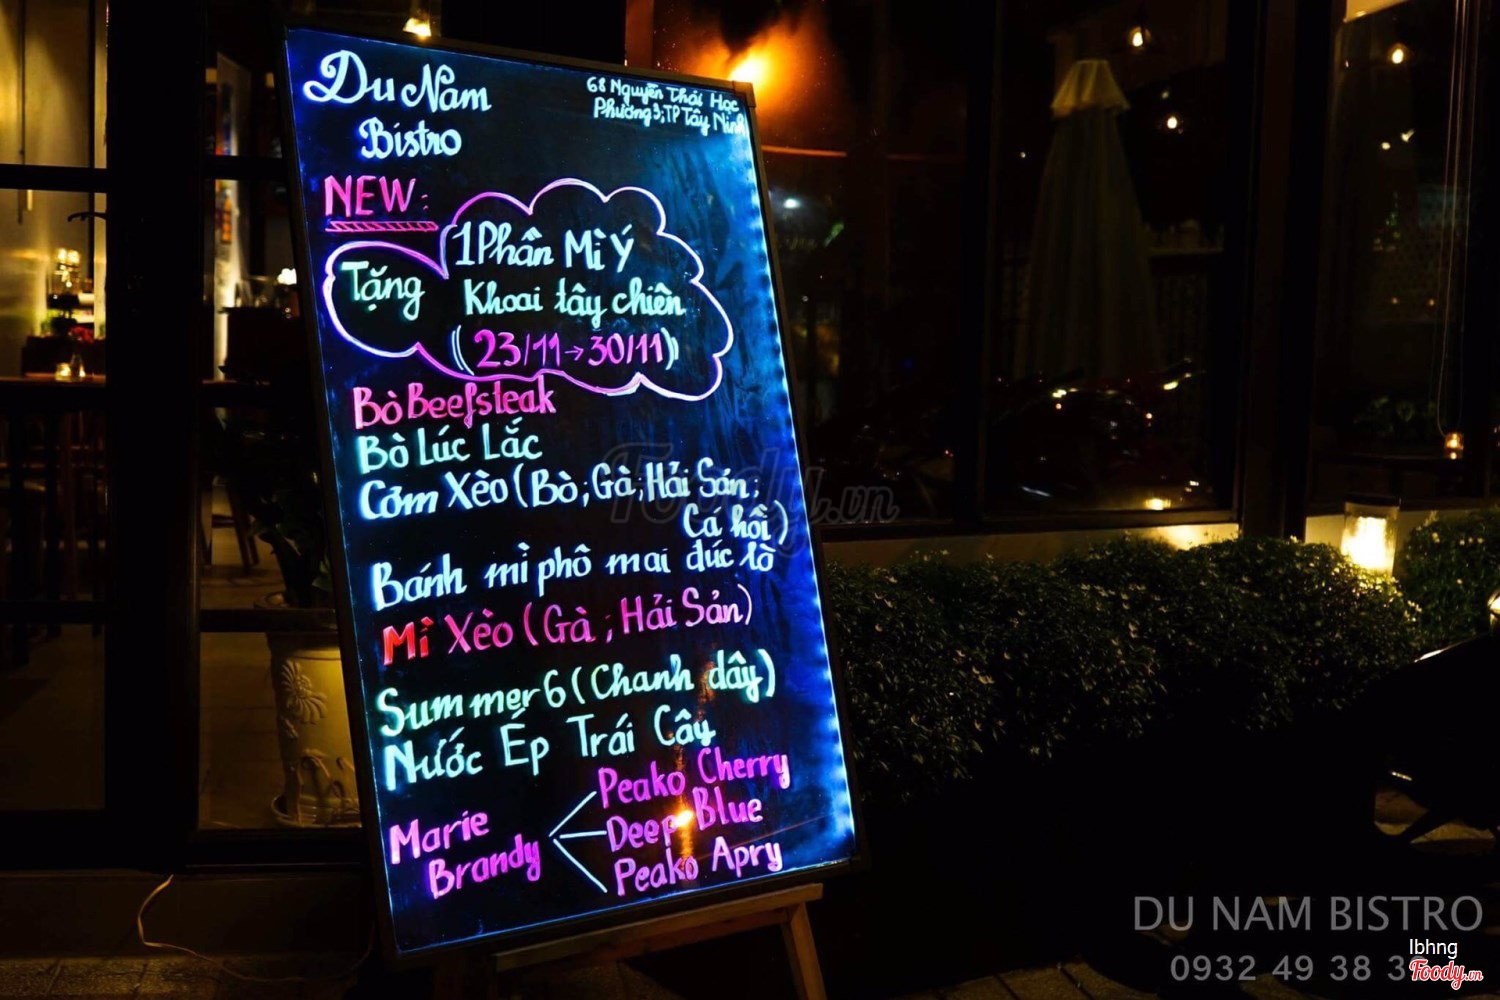 Du Nam
Bistro
68 Nguyễn Thái Học
Phường 3; TP Tây Ninh
NEW:
Tặng
1 Phần Mì Ý
Khoai tây chiên
(23/11→30/11)
Bò Beefsteak
Bò Lúc Lắc
Cơm Xèo (Bò; Gà; Hải Sản;
Cá hồi)
Bánh mì phô mai đúc lò
Mì Xèo (Gà; Hải Sản)
Summer 6 (Chanh dây)
Nước Ép Trái Cây
Marie
Brandy
Peako Cherry
Deep Blue
Peako Apry
Foody.vn
DU NAM BISTRO
lbhng
0932 49 38
Foody.vn